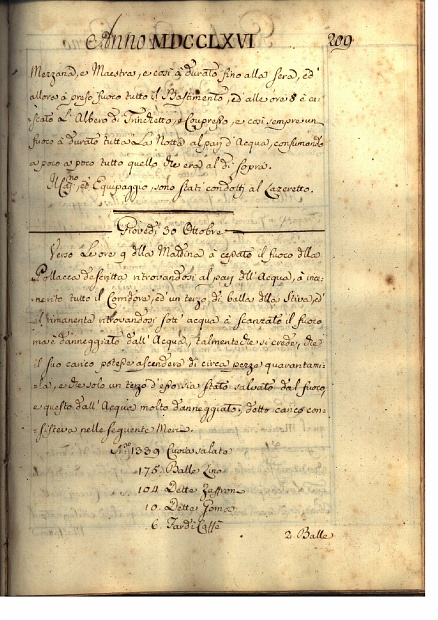 Anno MDCCLXVI 209
Mezzana, e Maestra, e così à durato fino alla sera, ed'
allora à preso fuoco tutto il Bastimento, ed' alle ore 8 è ca-
scato L'Albero di Trinchetto, e Coupresso, e così sempre un
fuoco à durato tutta La Notte al pari d'Acqua, consumando
a poco a poco tutto quello che era al di sopra.
Il Cap.no, ed Equipaggio sono stati condotti al Lazeretto.
Giovedì 30 Ottobre
Verso Le ore 9 della Mattina à cessato il fuoco della
Pollacca descritta ritrovandosi al pari dell'Acqua, à ince-
nerito tutto il Corridore, ed un terzo di balla della Stiva, ed'
il rimanente ritrovandosi sott'acqua à scanzato il fuoco
ma è danneggiato dall'Acqua, talmente che si crede, che
il suo carico potesse ascendere di circa pezze quaranta mi-
la, e che solo un terzo d'esso sia stato salvato dal fuoco
e questo dall'Acqua molto danneggiato, detto carico con-
sisteva nelle seguente Merci.
N.ro 1339 Cuoia salate
175 Balle Lino
104 Dette Zaffrone
10 Dette Goma
6 Fardi Caffè
2 Balle